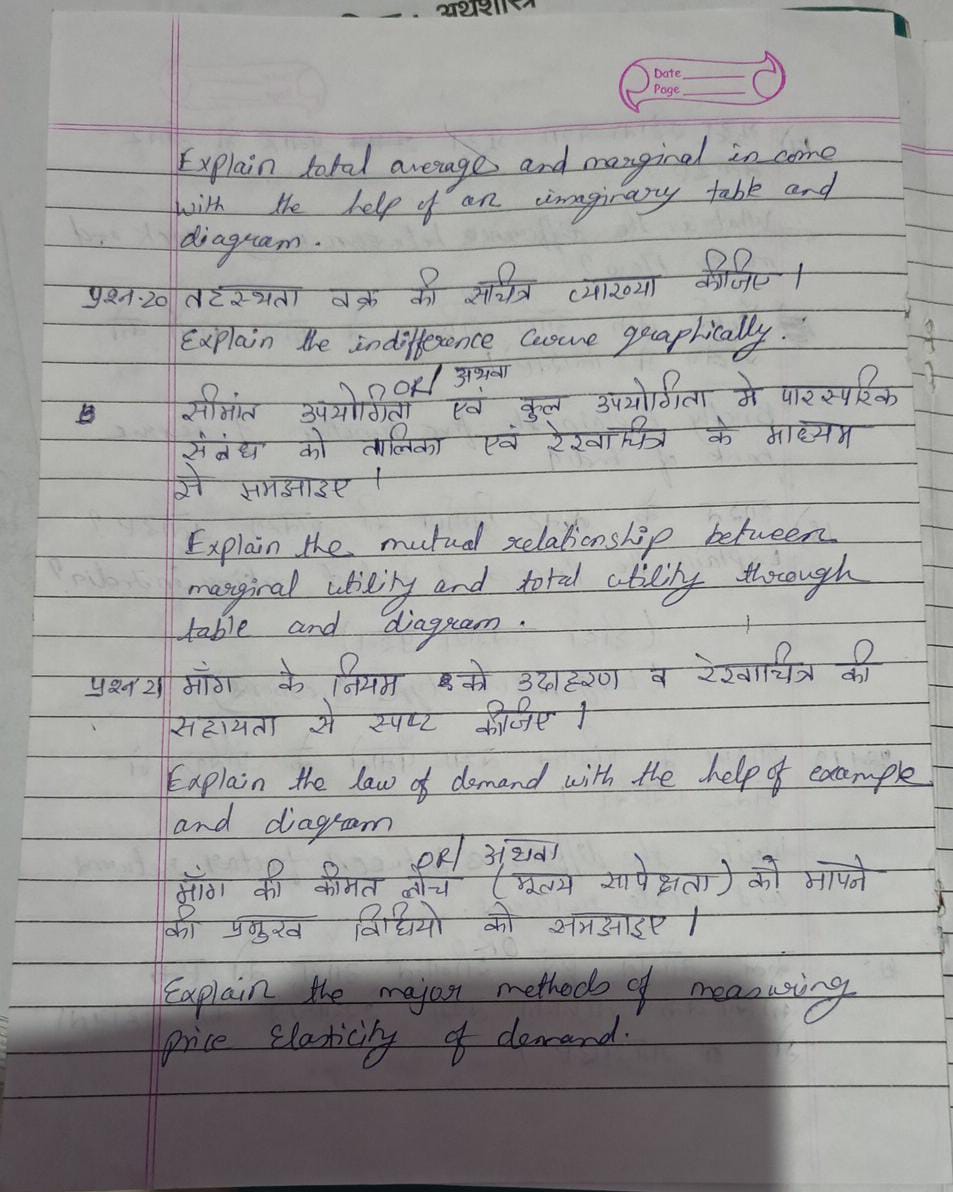 अर्थशास्त्र
Date
Page
Explain total average and marginal in come
with the help of an imaginary table and
diagram.
प्रश्न-20 तटस्थता वक्र की सचित्र व्याख्या कीजिए।
Explain the indifference curve graphically.
OR/ अथवा
सीमांत उपयोगिता एवं कुल उपयोगिता मे पारस्परिक
संबंध को तालिका एवं रेखाचित्र के माध्यम
से समझाइए।
Explain the mutual relationship between
marginal utility and total utility through
table and diagram.
प्रश्न 21 माँग के नियम को उदाहरण व रेखाचित्र की
सहायता से स्पष्ट कीजिए।
Explain the law of demand with the help of example
and diagram
OR/ अथवा
माँग की कीमत लोच (मूल्य सापेक्षता) को मापने
की प्रमुख विधियो को समझाइए।
Explain the major methods of measuring
price Elasticity of demand.